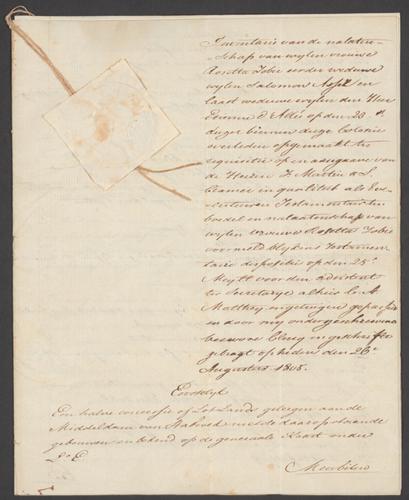 Inventaris van de nalaten-
-schap van wylen vrouwe
Rosetta Tobie eerder weduwe
wylen Salomon
laast weduwe wylen den Heer
Emme d'Ades op den 23e
dezer binnen deze Colonie
overleden opgemaakt ter
requisitie op en aangaave van
de Heeren F. Martin & L.
in qualiteit als Exe-
-cuteuren Testamentairen
boedel en nalaatenschap van
wylen vrouwe Rosetta Tobie
voormeld blykens Testamen-
taire dispositie op den 25e
voor den adsistent
ter Secretarye alhier
Matthey en getuigen gepasseerd
en door my ondergeschreven
Clercq in geschrifte
gebragt op heden den 26e
Augustus 1805.
Eerstelyk
Een halve concessie of Lot Lands gelegen aan de
Middeldam van Stabroek met de daar op staande
gebouwen en bekend op de generaale Kaart onder
No E
Meubilen